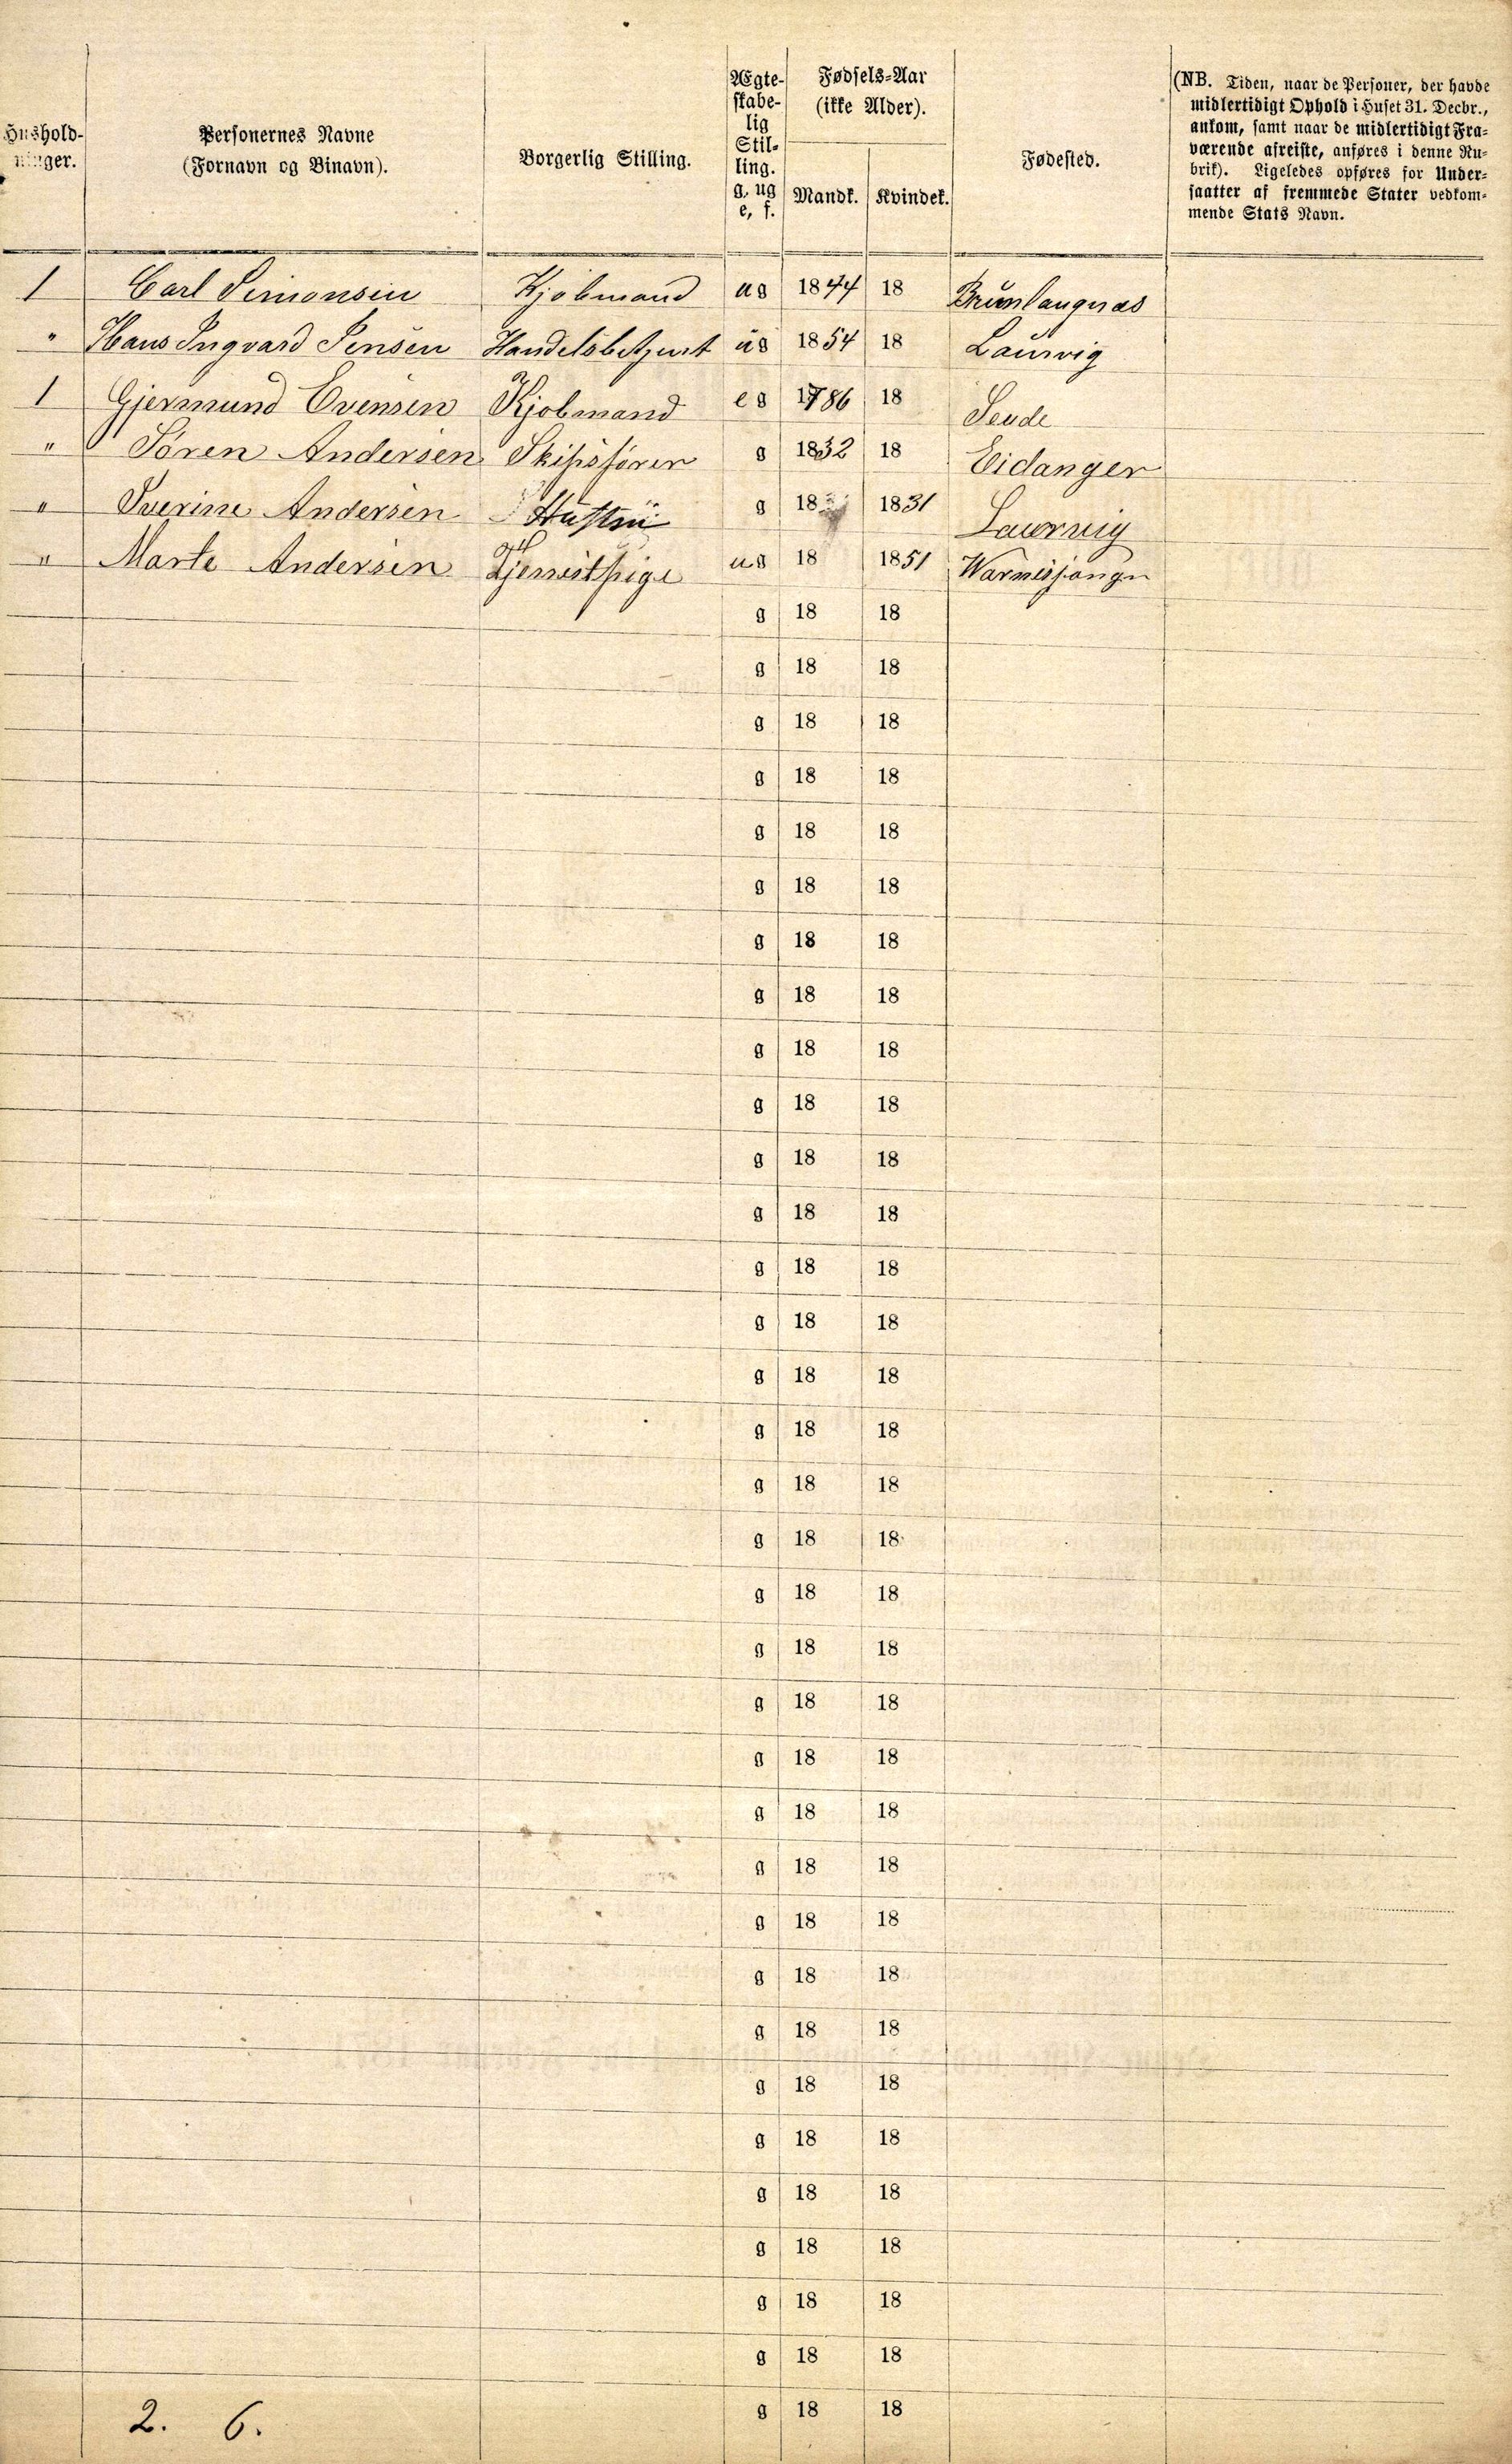 Hushold-
ninger.
Personernes Navne
(Fornavn og Binavn).
Borgerlig Stilling.
Ægte-
skabe-
lig
Stil-
ling.
g, ug
e, f.
Fødsels-Aar
(ikke Alder).
Mandk. Kvindek.
Fødested.
(NB. Tiden, naar de Personer, der havde
midlertidigt Ophold i Huset 31. Decbr.,
ankom, samt naar de midlertidigt Fra-
værende afreiste, anføres i denne Ru-
brik). Ligeledes opføres for Under-
saatter af fremmede Stater vedkom-
mende Stats Navn.
1 Carl Simonsen Kjøbmand ug 1844 18 Brunlaugnas
" Hans Ingvard Jensen Handelsbetjent ug 1854 18 Laurvig
1 Gjermund Evensen Kjøbmand eg 1786 18
" Sören Andersen Skibsförer g 1832 18 Eidanger
" Andersen Hustru g 18 1831 Laurvig
" Marte Andersen Tjenestpige ug 18 1851
g 18 18
g 18 18
g 18 18
g 18 18
g 18 18
g 18 18
g 18 18
g 18 18
g 18 18
g 18 18
g 18 18
g 18 18
g 18 18
g 18 18
g 18 18
g 18 18
g 18 18
g 18 18
g 18 18
g 18 18
g 18 18
g 18 18
g 18 18
g 18 18
g 18 18
g 18 18
g 18 18
g 18 18
g 18 18
g 18 18
g 18 18
g 18 18
g 18 18
g 18 18
2. 6.